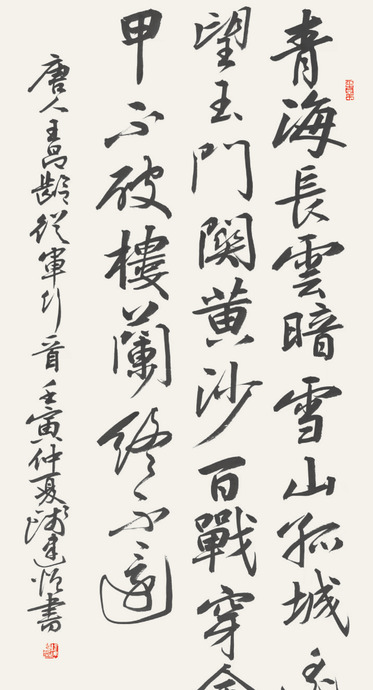 青海長雲暗雪山孤城遙
望玉門關黃沙百戰穿金
甲不破樓蘭終不還
唐人王昌齡從軍行一首壬寅仲夏書